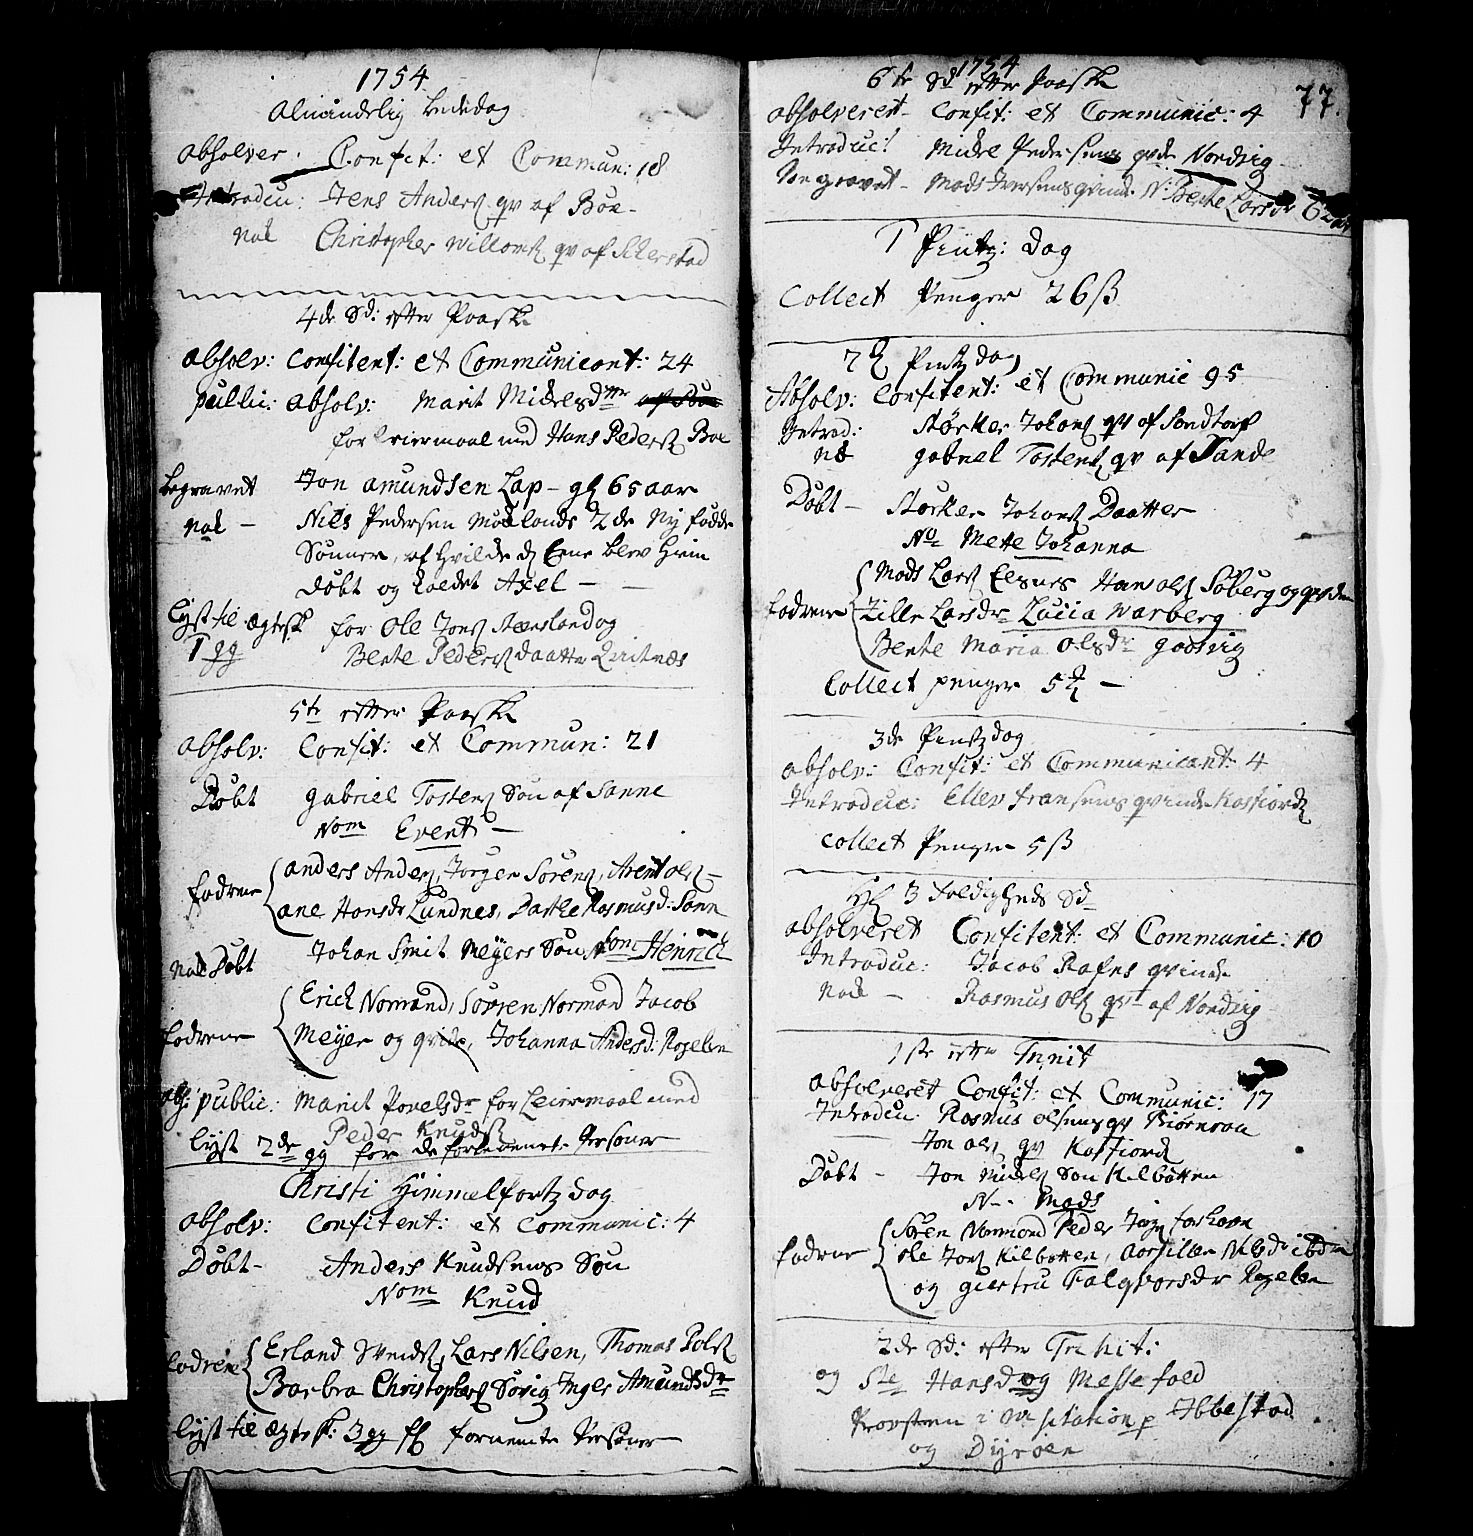 1754
Almindelig bededag
absolver. Confit: et Commun: 18
Introdu: Jens Anders: qv af Boe -
Noch Christopher Willoms: qv af Ilderstad
4de Sd: efter Paaske
absolv: Confitent: et Communicant: 24
public: absolv: Marit Mickelsdttr
for Leiermaal med Hans Peders: Boe
begravet Jon Amundsen Lap - gl 65 aar
Noch - Nils Pedersen Moelands 2de Ny fødde
Sønner, af hvilcke d Eene blev Hiem
døbt og kaldet Axel -
lyst til Ægtesk for Ole Jons:
1 gg Bente Peders daatter
5te efter Paaske
absolv: Confit: et Commun: 21
Døbt gabriel Tostens Søn af Sanne
Nom Evert -
fadrene anders Anders, Jørgen Sørens, Arent ols -
ane Hansdr Lundnes, Dorthe Rasmusd: Sann
Noch Døbt Johan Smit Meyers Søn Nom Henrich
fadrene Erich Normand, Sørren Normand Jacob
Meyer og qvide, Johanna Andersd: Rogelen
abs: public: Marit Povelsdr for Leiermaal med
Peder Knuds
lyst 2de gg for de forbenevnte Persóner
Christi Himmelfartz dag
absolv: Confitent: et Communic: 4
Døbt - Anders Knudsens Søn
Nom Knud
fadrene Erland Svends, Lars Nilsen, Thomas Pols
Barbra Christophers Sørvig Inger Amundsdr
lyst til Ægtesk: 3 gg fornemte Persóner
1754
77.
6te Sd efter Paaske
absolveret - Confit: et Communic: 4
Introduc: Mickel Pedersens qvde Nordvig
Begravet - Mads Iversens qvinde N: Bente Larsdr 62 aar
1 Pintz: Dag
Collect Penger 26 ß
2 Pintz dag
Absolv: Confitent: et Communic 95
Introd: Størcker Johans qv af Sandtorf
Noch gabriel Tostens qv af Sande
Døbt - Størcker Johans Daatter
No Mette Johanna
fadrene Mads Lars Elsnes Hans ols Søberg og
Zille Larsdr Lucia Warberg
Bente Maria Olsdr gaasvig
Collect penger 5 -
3de Pintz dag
absolv: Confit: et Communicant: 4
Introduc: Ellev fransens qvinde Kasfiord
Collect Penger 5 ß
Hl 3 foldigheds Sd
absolveret Confitent: et Communic: 10
Introduc: Jacob Rafns qvinde
Noch - Rasmus Ols qv af Nordvig
1ste efter Trinit
absolveret Confit: et Communic: 17
Introdu: Rasmus olsens qv Biørnraa
Jon ols qv Kasfiord
Døbt - Jon Nichels Søn Kilbotten
N - Mads
fadrene Sören Normand Peder
ole Jons Kilbotten, Nilsdr ibdm
og giertru Falqvorsdr Rogelen
2de Sd: efter Trinit:
og Ste Hansdag Messefald
Provsten i Visitation p Ibbestad
og Dyrøen